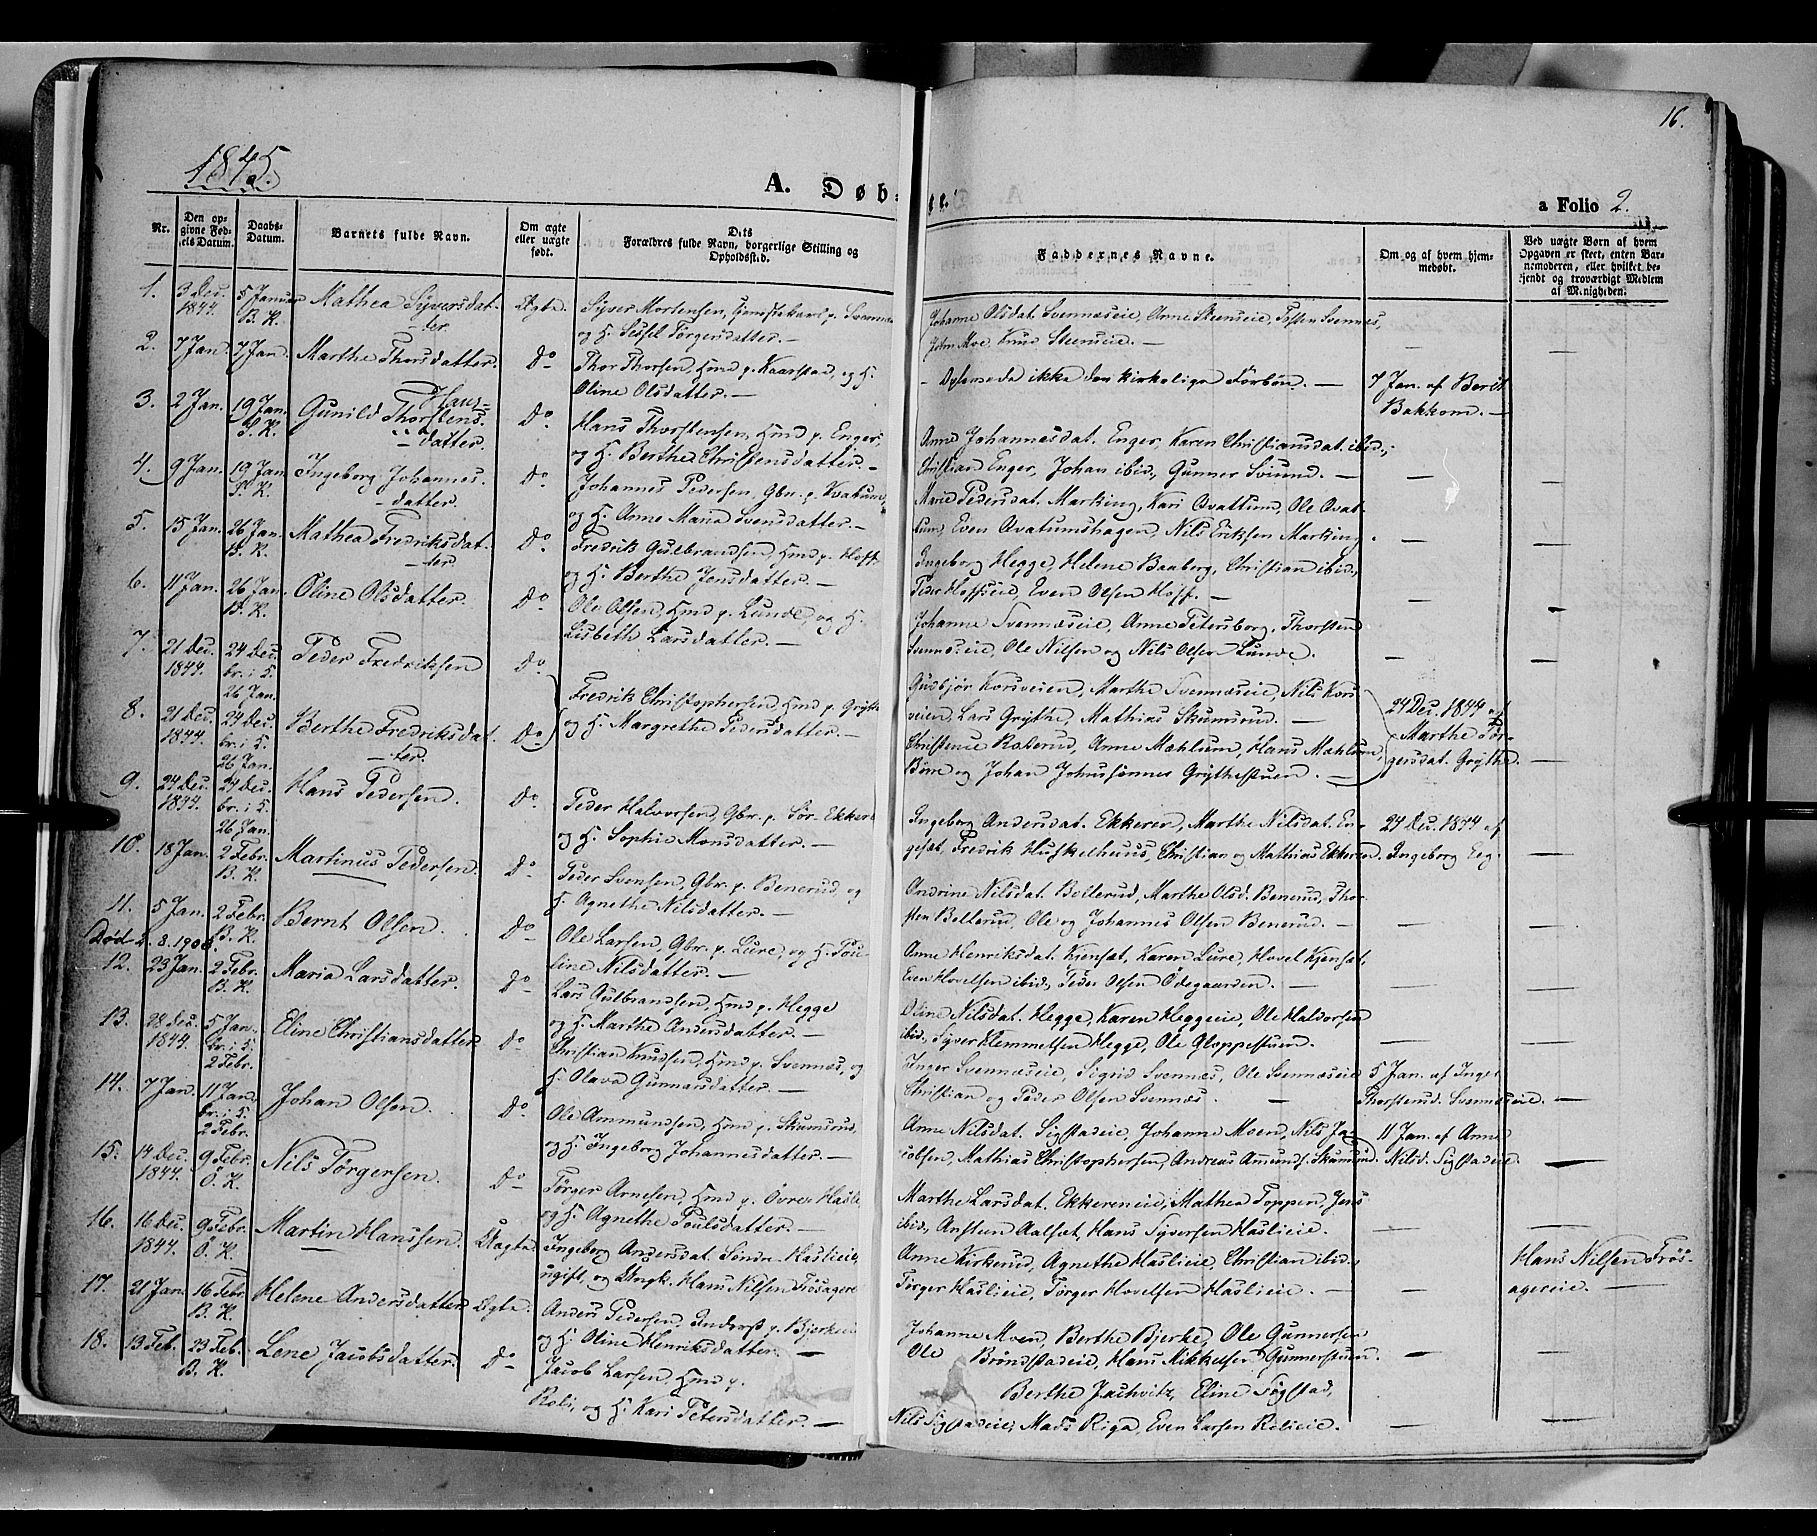 16.
1845.
A. Døb-
te.
a Folio 2.
Nr.
Den op-
givne Fød-
sels Datum.
Daabs-
Datum.
Barnets fulde Navn.
Om ægte
eller uægte
født.
Dets
Forældres fulde Navn, borgerlige Stilling og
Opholdssted.
Faddernes Navne.
Om og af hvem hjem-
medøbt.
Ved uægte Børn af hvem
Opgaven er skeet, enten Bar-
nemoderen, eller hvilket be-
kjendt og troværdigt Medlem
af Menigheden.
1. 3 Dec. 1844. 5 Januar B. K. Mathea Syversdat-
ter. Ægte. Syver Mortensen, p. Svennes
og H. Sissil Törgersdatter. —
Johanne Olsdat. Svennæseie, Anne Steenseie, Svennes,
John Moe, Knud Steenseie. —
2. 7 Jan. 7 Jan. Marthe Thorsdatter. Do Thor Thorsen, Hmd p. Kaarstad, og H.
Oline Olsdatter. —
ikke den kirkelige Forbøn. — 7 Jan. af Berit
Bakkom. —
3. 2 Jan. 19 Jan. S. K. Gunild Hans-
Thorstens-
datter. Do. Hans Thorstensen, Hmd p. Enger,
og H. Berthe Christensdatter. —
Anne Johannesdat. Enger, Karen Christiansdat. ibid.,
Christian Enger, Johan ibid., Gunner Sviund. —
4. 9 Jan. 19 Jan. S. K. Ingeborg Johannes-
datter. Do. Johannes Pedersen, Gbr. p. Kvatum
og H. Anne Maria Svensdatter. —
Marie Pedersdat. Marking, Kari Qvattum, Ole Qvat-
tum, Even Qvatumshagen, Nils Eriksen Marking.
5. 15 Jan. 26 Jan. B. K. Mathea Fredriksdat-
ter. Do. Fredrik Gulbrandsen, Hmd p. Hoff
og H. Berthe Jensdatter. —
Ingeborg Hegge, Helene Baaberg, Christian ibid.,
Peder Hoffseie, Even Olsen Hoff. —
6. 11 Jan. 26 Jan. B. K. Oline Olsdatter. Do Ole Olsen, Hmd p. Lunde, og H.
Lisbeth Larsdatter. —
Johanne Svennæseie, Anne Petersborg, Thorsten
Svennæseie, Ole Nilsen og Nils Olsen Lunde.
7. 21 Dec. 1844. 24 Dec. br. i S. 26 Jan. Peder Fredriksen Do.
Fredrik Christophersen, Hmd p. Grythe
og H. Margrethe Pedersdatter. —
Gudbjør Korsveien, Marthe Svennæseie, Nils Kors-
veien, Lars Grythe, Mathias Skumsrud. —
24 Dec. 1844 af
Marthe Tör-
gersdat. Grythe. —
8. 21 Dec. 1844. 24 Dec. br. i S. 26 Jan. Berthe Fredriksdat-
ter. Do.
Christense Raterud, Anne Mæhlum, Hans Mæhlum,
og Johan Johannes Grythestuen. —
9. 24 Dec. 1844. 24 Dec. br. i S. 26 Jan. Hans Pedersen. Do. Peder Halvorsen, Gbr. p. Sør-Ekkern
og H. Sophie Monsdatter. —
Ingeborg Andersdat. Ekkeren, Marthe Nilsdat. En-
gesæt, Fredrik Huskelhuus, Christian og Mathias Ekkeren.
24 Dec. 1844 af
Ingeborg Eeg. —
10. 18 Jan. 2 Febr. B. K. Martinus Pedersen. Do. Peder Svensen, Gbr. p. Benerud, og
H. Agnethe Nilsdatter. —
Andrine Nilsdat. Bollerud, Marthe Olsd. Benerud, Thor-
sten Bollerud, Ole og Johannes Olsen Benerud. —
11. 5 Jan. 2 Febr. B. K. Bernt Olsen. Do. Ole Larsen, Gbr. p. Lure, og H. Pou-
line Nilsdatter. —
Død 8. 1908
Anne Henriksdat. Kjensæt, Karen Lure, Hovel Kjensæt,
Even Hovelsen ibid., Peder Olsen Ödegaarden. —
12. 23 Jan. 2 Febr. B. K. Maria Larsdatter. Do. Lars Gulbrandsen, Hmd p. Hegge
og H. Marthe Andersdatter. —
Oline Nilsdat. Hegge, Karen Heggeeie, Ole Haldorsen
ibid., Syver Klemmetsen Hegge, Ole Gloppestuen. —
13. 28 Dec. 1844. 5 Jan. br. i S. 2 Febr. Eline Christiansdatter. Do. Christian Knudsen, Hmd p. Svennæs, og
H. Olava Gunnarsdatter. —
Inger Svennæseie, Sigrid Svennæs, Ole Svennæseie
Christian og Peder Olsen Svennæs. —
5 Jan. af Inger
Thorstensd. Svennæseie. —
14. 7 Jan. 11 Jan. br. i S. 2 Febr. Johan Olsen. Do. Ole Ammundsen, Hmd p. Skumsrud
og H. Ingeborg Johannesdatter. —
Anne Nilsdat. Sigstadeie, Johanne Moen, Nils Ja-
cobsen, Mathias Christophersen, Andreas Amunds. Skumsrud.
11 Jan. af Anne
Nilsd. Sigstadeie.
15. 14 Dec. 1844. 9 Febr. Ö. K. Nils Törgersen. Do. Törger Arnesen, Hmd p. Övre Hasle
og H. Agnethe Poulsdatter. —
Marthe Larsdat. Ekkereneie, Mathea Toppen, Jens
ibid., Arnsten Aalsæt, Hans Syversen Haslieie. —
16. 16 Dec. 1844. 9 Febr. Ö. K. Martin Hanssen. Uægte. Ingeborg Andersdat. Søndre Haslieie,
ugift, og Ungk. Hans Nilsen Frösagere
Anne Kirkerud, Agnethe Haslieie, Christian ibid.,
Törger Haslieie, Törger Hovelsen Haslieie. —
Hans Nilsen Frös-
agereie. —
17. 21 Jan. 16 Febr. B. K. Helene Andersdatter. Ægte. Anders Pedersen, Inderst p. Bjerkeeie
og H. Oline Henriksdatter. —
Johanne Moen, Berthe Bjerke, Ole Gunnersen
Ole Brøndstadeie, Hans Mikkelsen Gunnerstuen.
18. 13 Feb. 23 Feb. B. K. Lene Jacobsdatter. Do Jacob Larsen, Hmd p.
Roli, og H. Kari Petersdatter. —
Berthe Jachvitz, Eline Sigstad,
Nils Sigstadeie, Mads Riga, Even Larsen Rolieie.